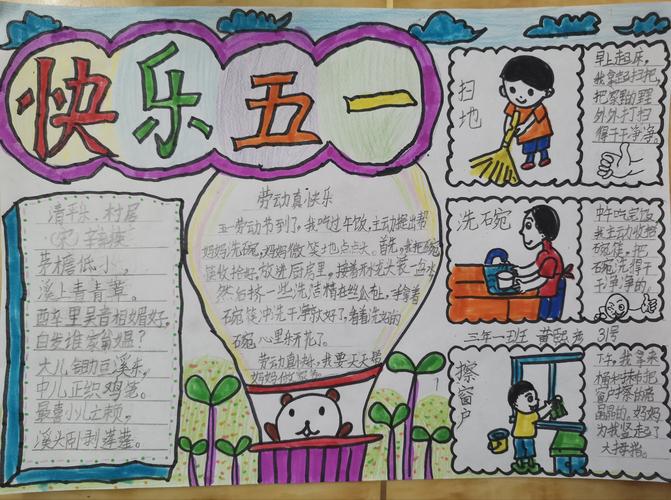 快乐五一
清平乐.村居
(宋)辛弃疾
茅檐低小,
溪上青青草。
醉里吴音相媚好,
白发谁家翁媪?
大儿锄豆溪东,
中儿正织鸡笼。
最喜小儿亡赖,
溪头卧剥莲蓬。
劳动真快乐
五一劳动节到了,我吃过午饭,主动提出帮
妈妈洗碗,妈妈微笑地点点头。首先,我把碗
筷收拾好,放进厨房里,接着
然后挤一些洗洁精在丝瓜布上,
碗筷冲洗干净放好了,看着洗好的
碗,心里乐开花了。
劳动真快乐,我要天天帮
妈妈做家务
扫地
早上起床,
我拿起扫把,
把家里的里里
外外打扫
得干干净净。
洗碗
中午吃完饭
我主动收拾
碗筷,把
碗洗得干
干净净的。
三年一班 黄 3号
擦窗户
下午,我拿来
桶和抹布把
窗户擦的亮
晶晶的,妈妈
为我竖起了
大拇指。